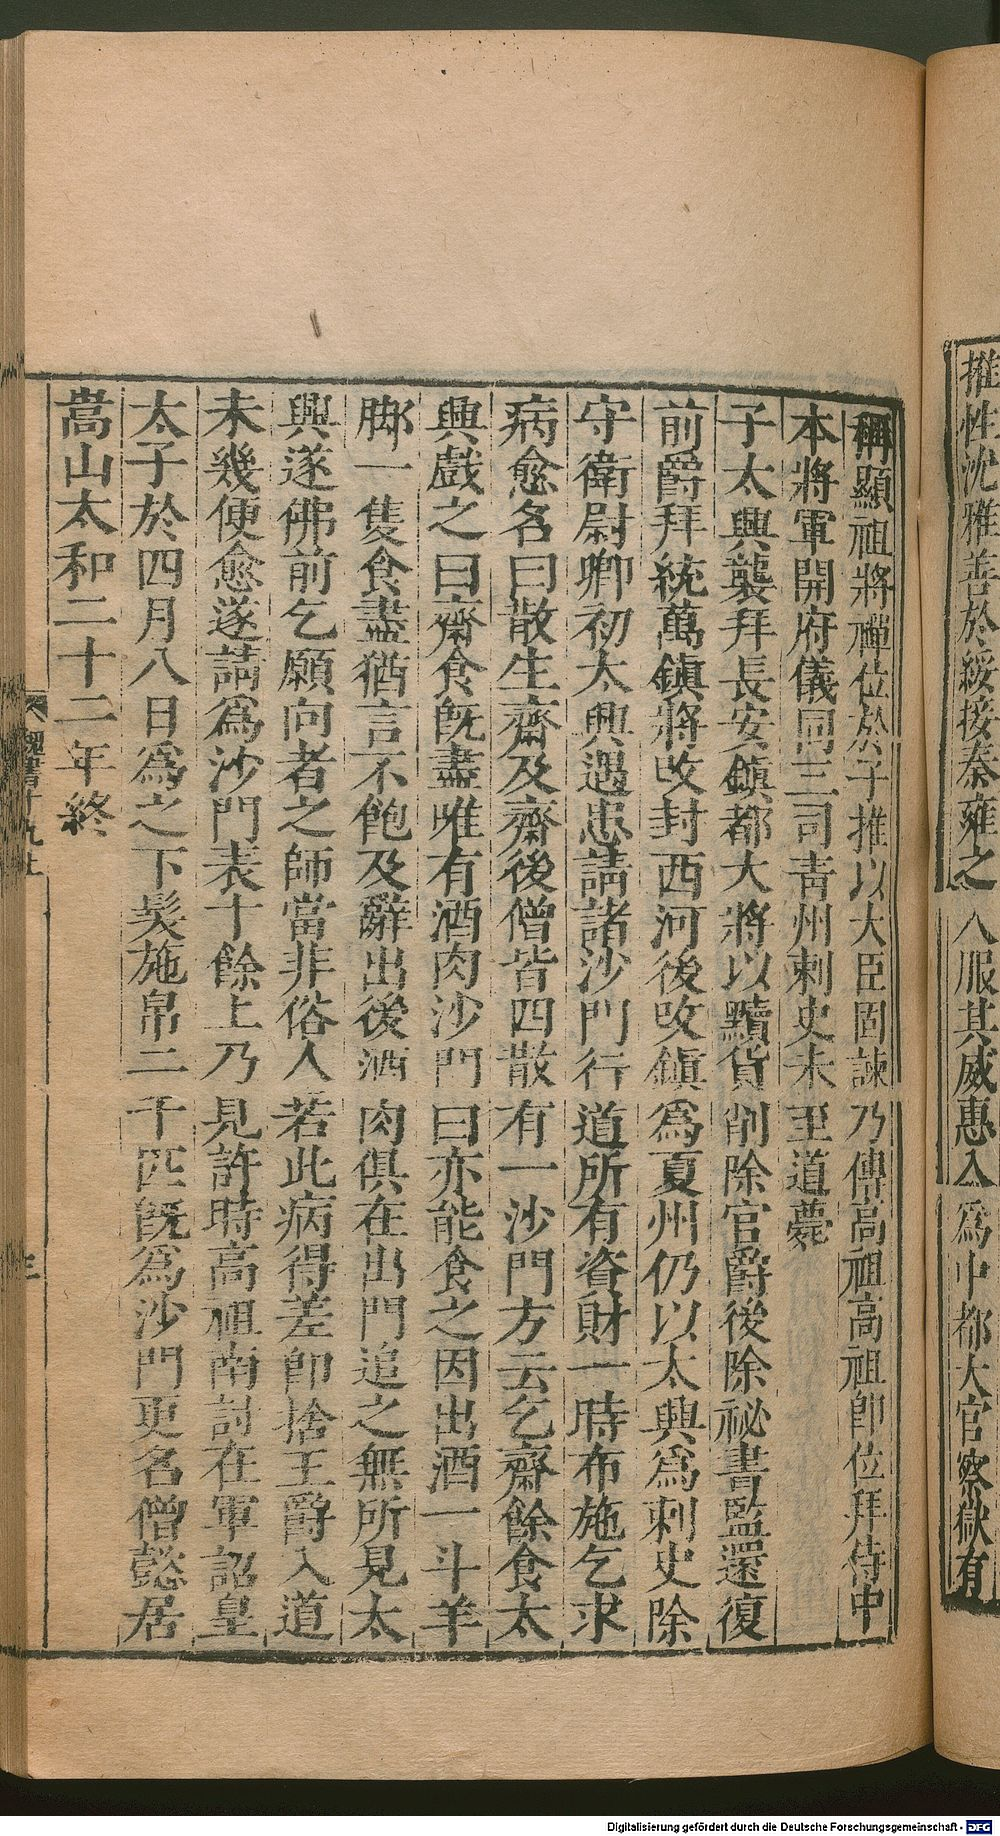 推性沈雅善於綏接秦雍之人服其威惠入爲中都大官察獄有
稱顯祖將禪位於子推以大臣固諫乃傳高祖高祖即位拜侍中
本將軍開府儀同三司青州刺史未至道薨
子太興襲拜長安鎮都大將以黷貨削除官爵後除祕書監還復
前爵拜統萬鎮將改封西河後改鎮爲夏州仍以太興爲刺史除
守衛尉卿初太興遇患請諸沙門行道所有資財一時布施乞求
病愈名曰散生齋及齋後僧皆四散有一沙門方云乞齋餘食太
興戲之曰齋食旣盡唯有酒肉沙門曰亦能食之因出酒一斗羊
脚一隻食盡猶言不飽及辭出後酒肉俱在出門追之無所見太
興遂佛前乞願向者之師當非俗人若此病得差即捨王爵入道
未幾便愈遂請爲沙門表十餘上乃見許時高祖南討在軍詔皇
太子於四月八日爲之下髮施帛二千匹旣爲沙門更名僧懿居
嵩山太和二十二年終
魏書十九上
三
Digitalisierung gefördert durch die Deutsche Forschungsgemeinschaft - DFG